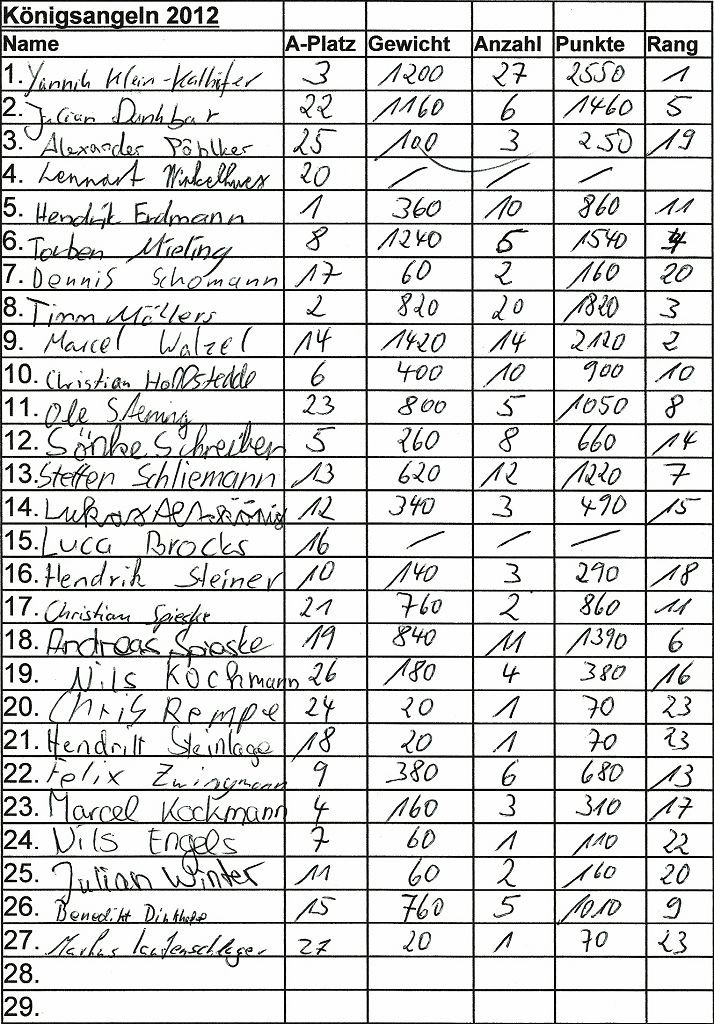 Königsangeln 2012
Name A-Platz Gewicht Anzahl Punkte Rang
1. Yannik Klein-Kalhöfer 3 1200 27 2550 1
2. Julian Dunkbar 22 1160 6 1460 5
3. Alexander Pöhlker 25 100 3 250 19
4. Lennart 20 / / /
5. Hendrik Erdmann 1 360 10 860 11
6. Torben Mieling 8 1240 6 1540 4
7. Dennis Schomann 17 60 2 160 20
8. Timm Möllers 2 820 20 1820 3
9. Marcel Walzel 14 1420 14 2120 2
10. Christian Hollstedde 6 400 10 900 10
11. Ole 23 800 5 1050 8
12. Sönke Schreiber 5 260 8 660 14
13. Steffen Schliemann 13 620 12 1220 7
14. Lukas Altekönig 12 340 3 490 15
15. Luca Brocks 16 / / /
16. Hendrik Steiner 10 140 3 290 18
17. Christian Spieske 21 760 2 860 11
18. Andreas Spieske 19 840 11 1390 6
19. Nils Kochmann 26 180 4 380 16
20. Chris Rempe 24 20 1 70 23
21. Hendrik Steinlage 18 20 1 70 23
22. Felix Zwingmann 9 380 6 680 13
23. Marcel Kockmann 4 160 3 310 17
24. Nils Engels 7 60 1 110 22
25. Julian Winter 11 60 2 160 20
26. Benedikt 15 760 5 1010 9
27. Markus Lautenschlager 27 20 1 70 23
28.
29.